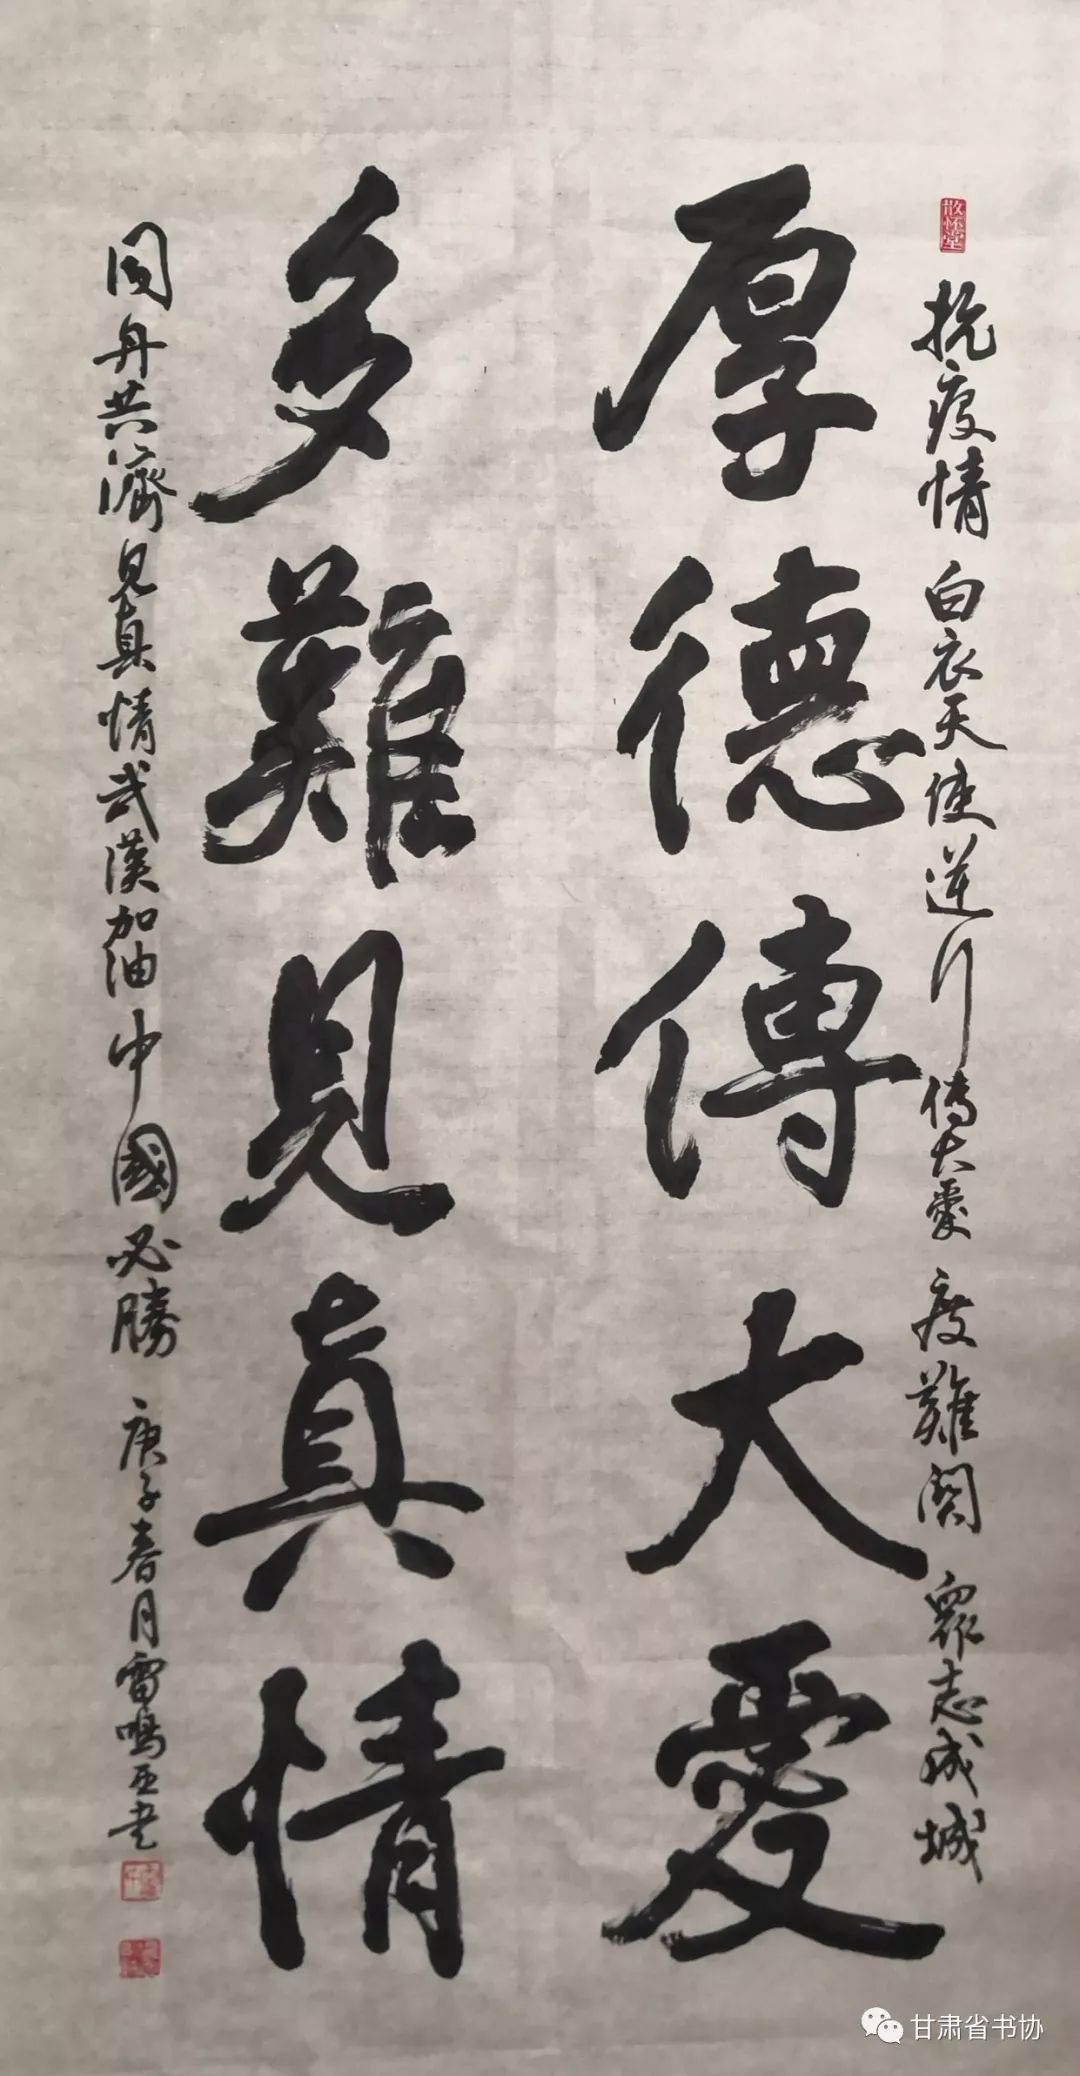 散怀堂
抗疫情 白衣天使逆行傳大愛 度難関 眾志成城
厚德傳大愛
多難見真情
同舟共濟見真情武漢加油中國必勝 庚子春月雷鳴亞書
甘肃省书协